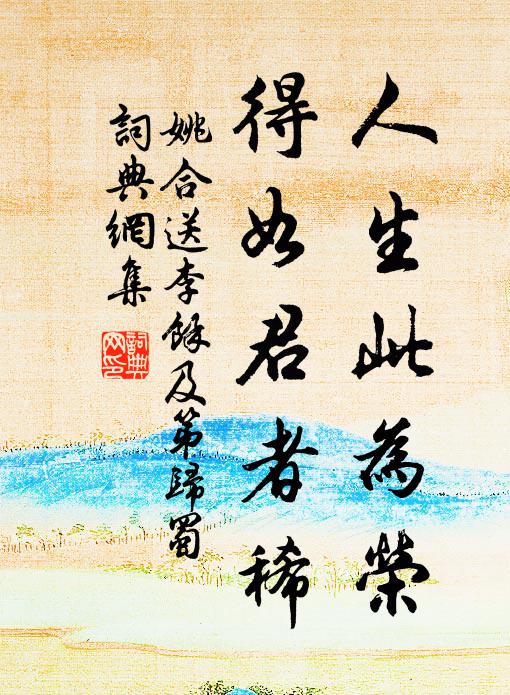 人生此為榮
得如君者稀
姚合送李餘及第歸蜀
詞典網集
詞典網印